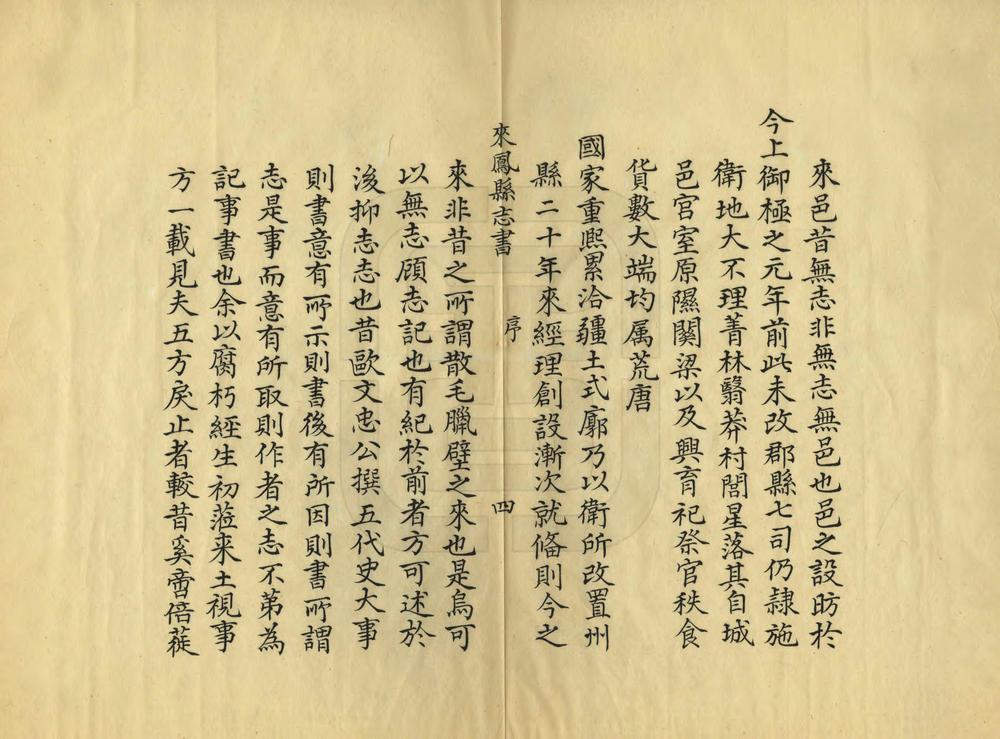 來邑昔無志非無志無邑也邑之設昉於
今上御極之元年前此未改郡縣七司仍隸施
衛地大不理菁林翳莽村閭星落其自城
邑宫室原隰關梁以及興育祀祭官秩食
貨數大端均属荒唐
國家重熙累洽疆土式廓乃以衛所改置州
縣二十年來經理創設漸次就俻則今之
來鳳縣志書 序 四
來非昔之所謂散毛臘壁之來也是烏可
以無志顧志記也有紀於前者方可述於
後抑志志也昔歐文忠公撰五代史大事
則書意有所示則書後有所因則書所謂
志是事而意有所取則作者之志不第為
記事書也余以腐朽經生初蒞来土視事
方一載見夫五方戾止者較昔奚啻倍蓰